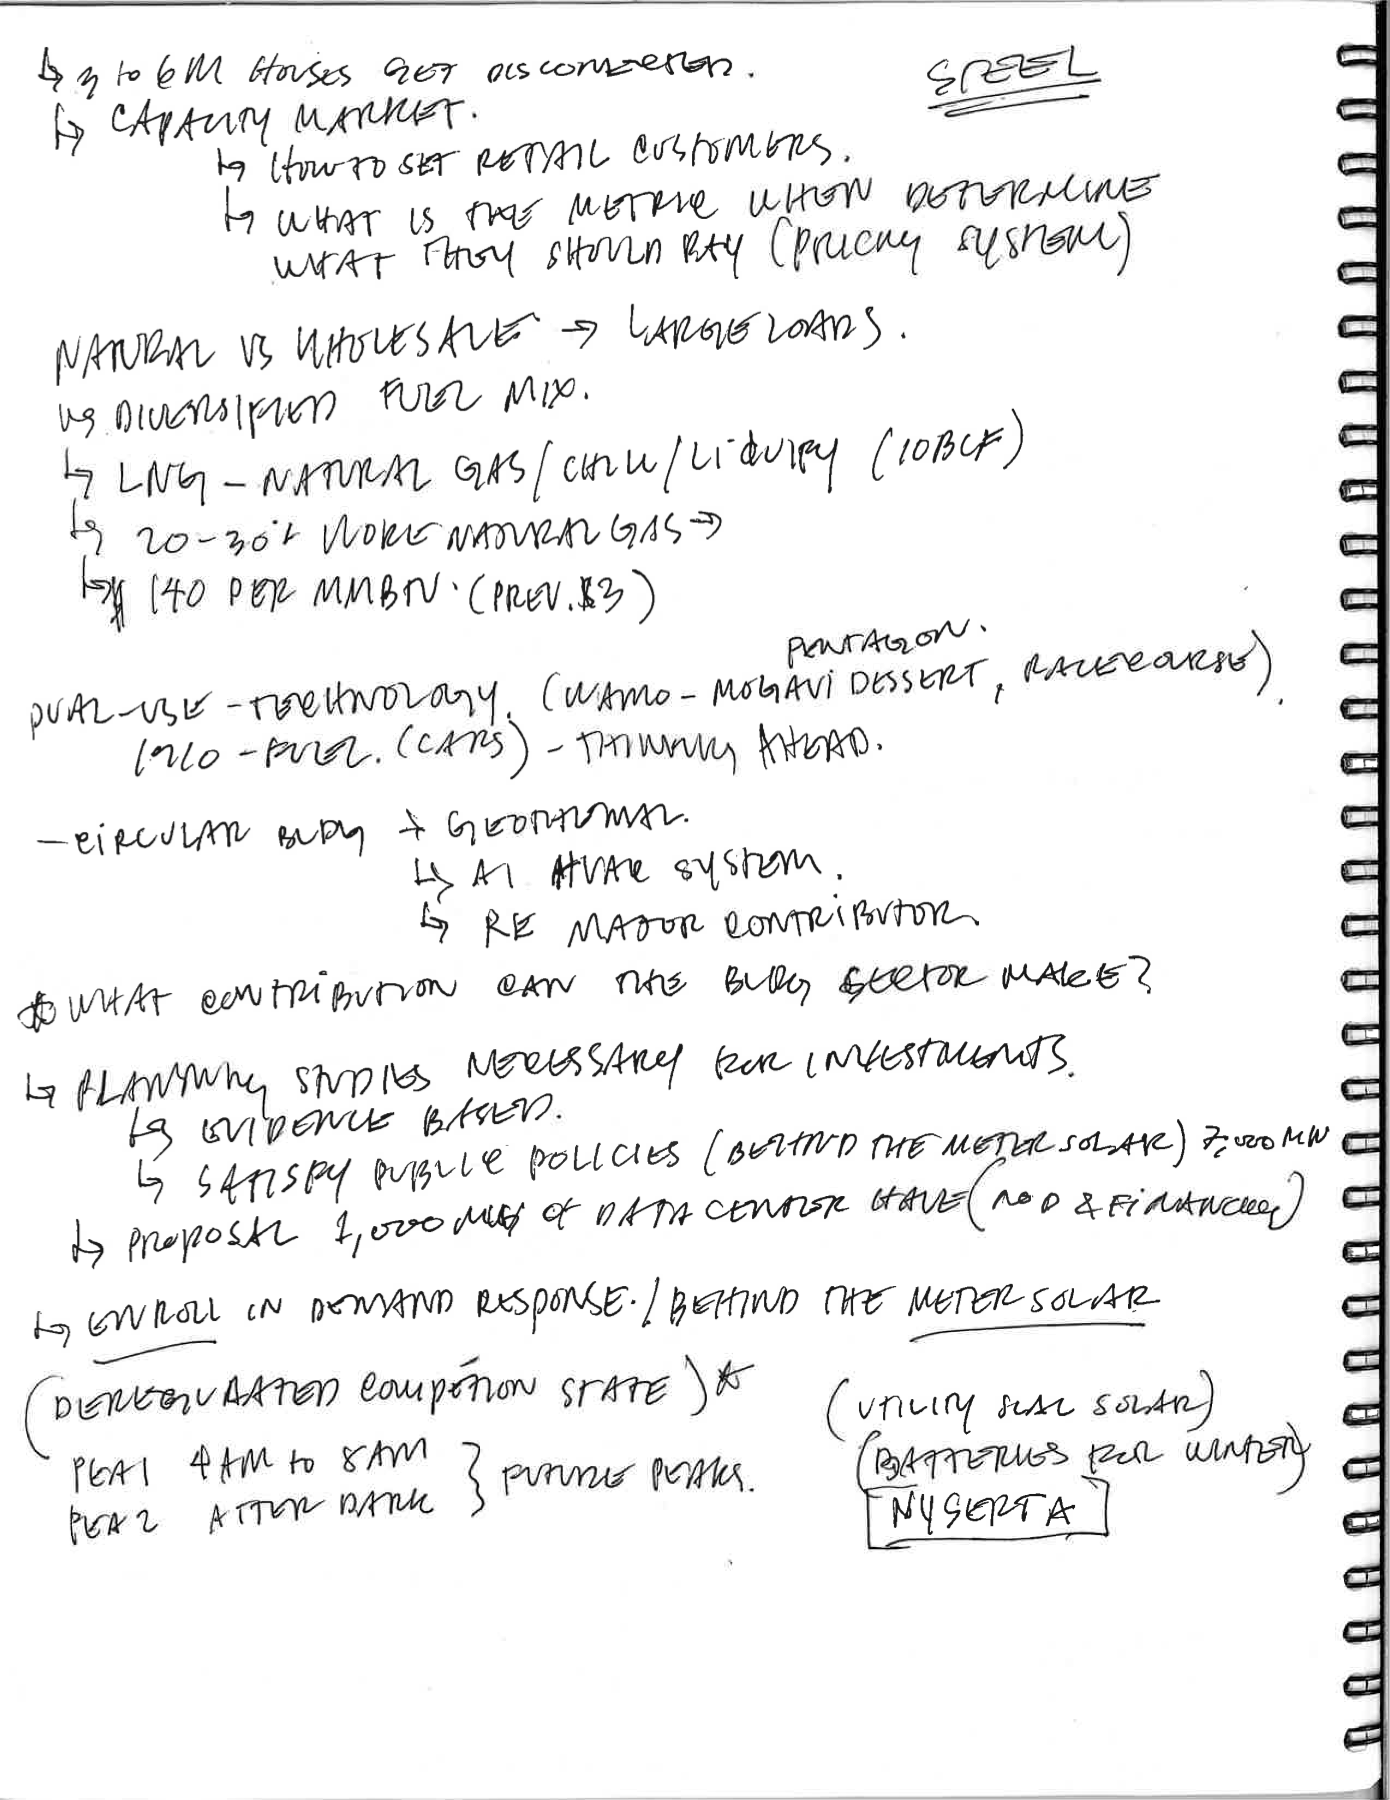 ↳ 3 to 6M HOUSES GET DISCONNECTED.
STEEL
↳ CAPACITY MARKET.
↳ HOW TO SET RETAIL CUSTOMERS.
↳ WHAT IS THE METRIC WHEN DETERMINE
WHAT THEY SHOULD PAY (PRICING SYSTEM)
NATURAL VS WHOLESALE → LARGE LOADS.
↳ DIVERSIFIED FUEL MIX.
↳ LNG - NATURAL GAS/CHILL/LIQUIFY (10BCF)
↳ 20-30% MORE NATURAL GAS →
↳ $ 140 PER MMBTU. (PREV. $3)
PENTAGON.
DUAL-USE-TECHNOLOGY. (WAMO - MOGAVI DESSERT, RACECOURSE).
1910 - FUEL. (CARS) - THINKING AHEAD.
- CIRCULAR BLDG + GEOTHERMAL.
↳ AI HVAC SYSTEM.
↳ RE MAJOR CONTRIBUTOR.
☆ WHAT CONTRIBUTION CAN THE BLDG SECTOR MAKE?
↳ PLANNING STUDIES NECESSARY FOR INVESTMENTS.
↳ EVIDENCE BASED.
↳ SATISFY PUBLIC POLICIES (BEHIND THE METER SOLAR) 7,000 MW
↳ PROPOSAL 1,000 MWS OF DATA CENTER HAVE (NO D & FINANCING)
↳ ENROLL IN DEMAND RESPONSE. / BEHIND THE METER SOLAR
(DEREGULATED COMPETION STATE) ☆
(UTILITY SCAL SOLAR)
PEA1 4AM to 8AM } FUTURE PEAKS.
(BATTERIES FOR WINTER)
PEA2 AFTER DARK
NYSERTA